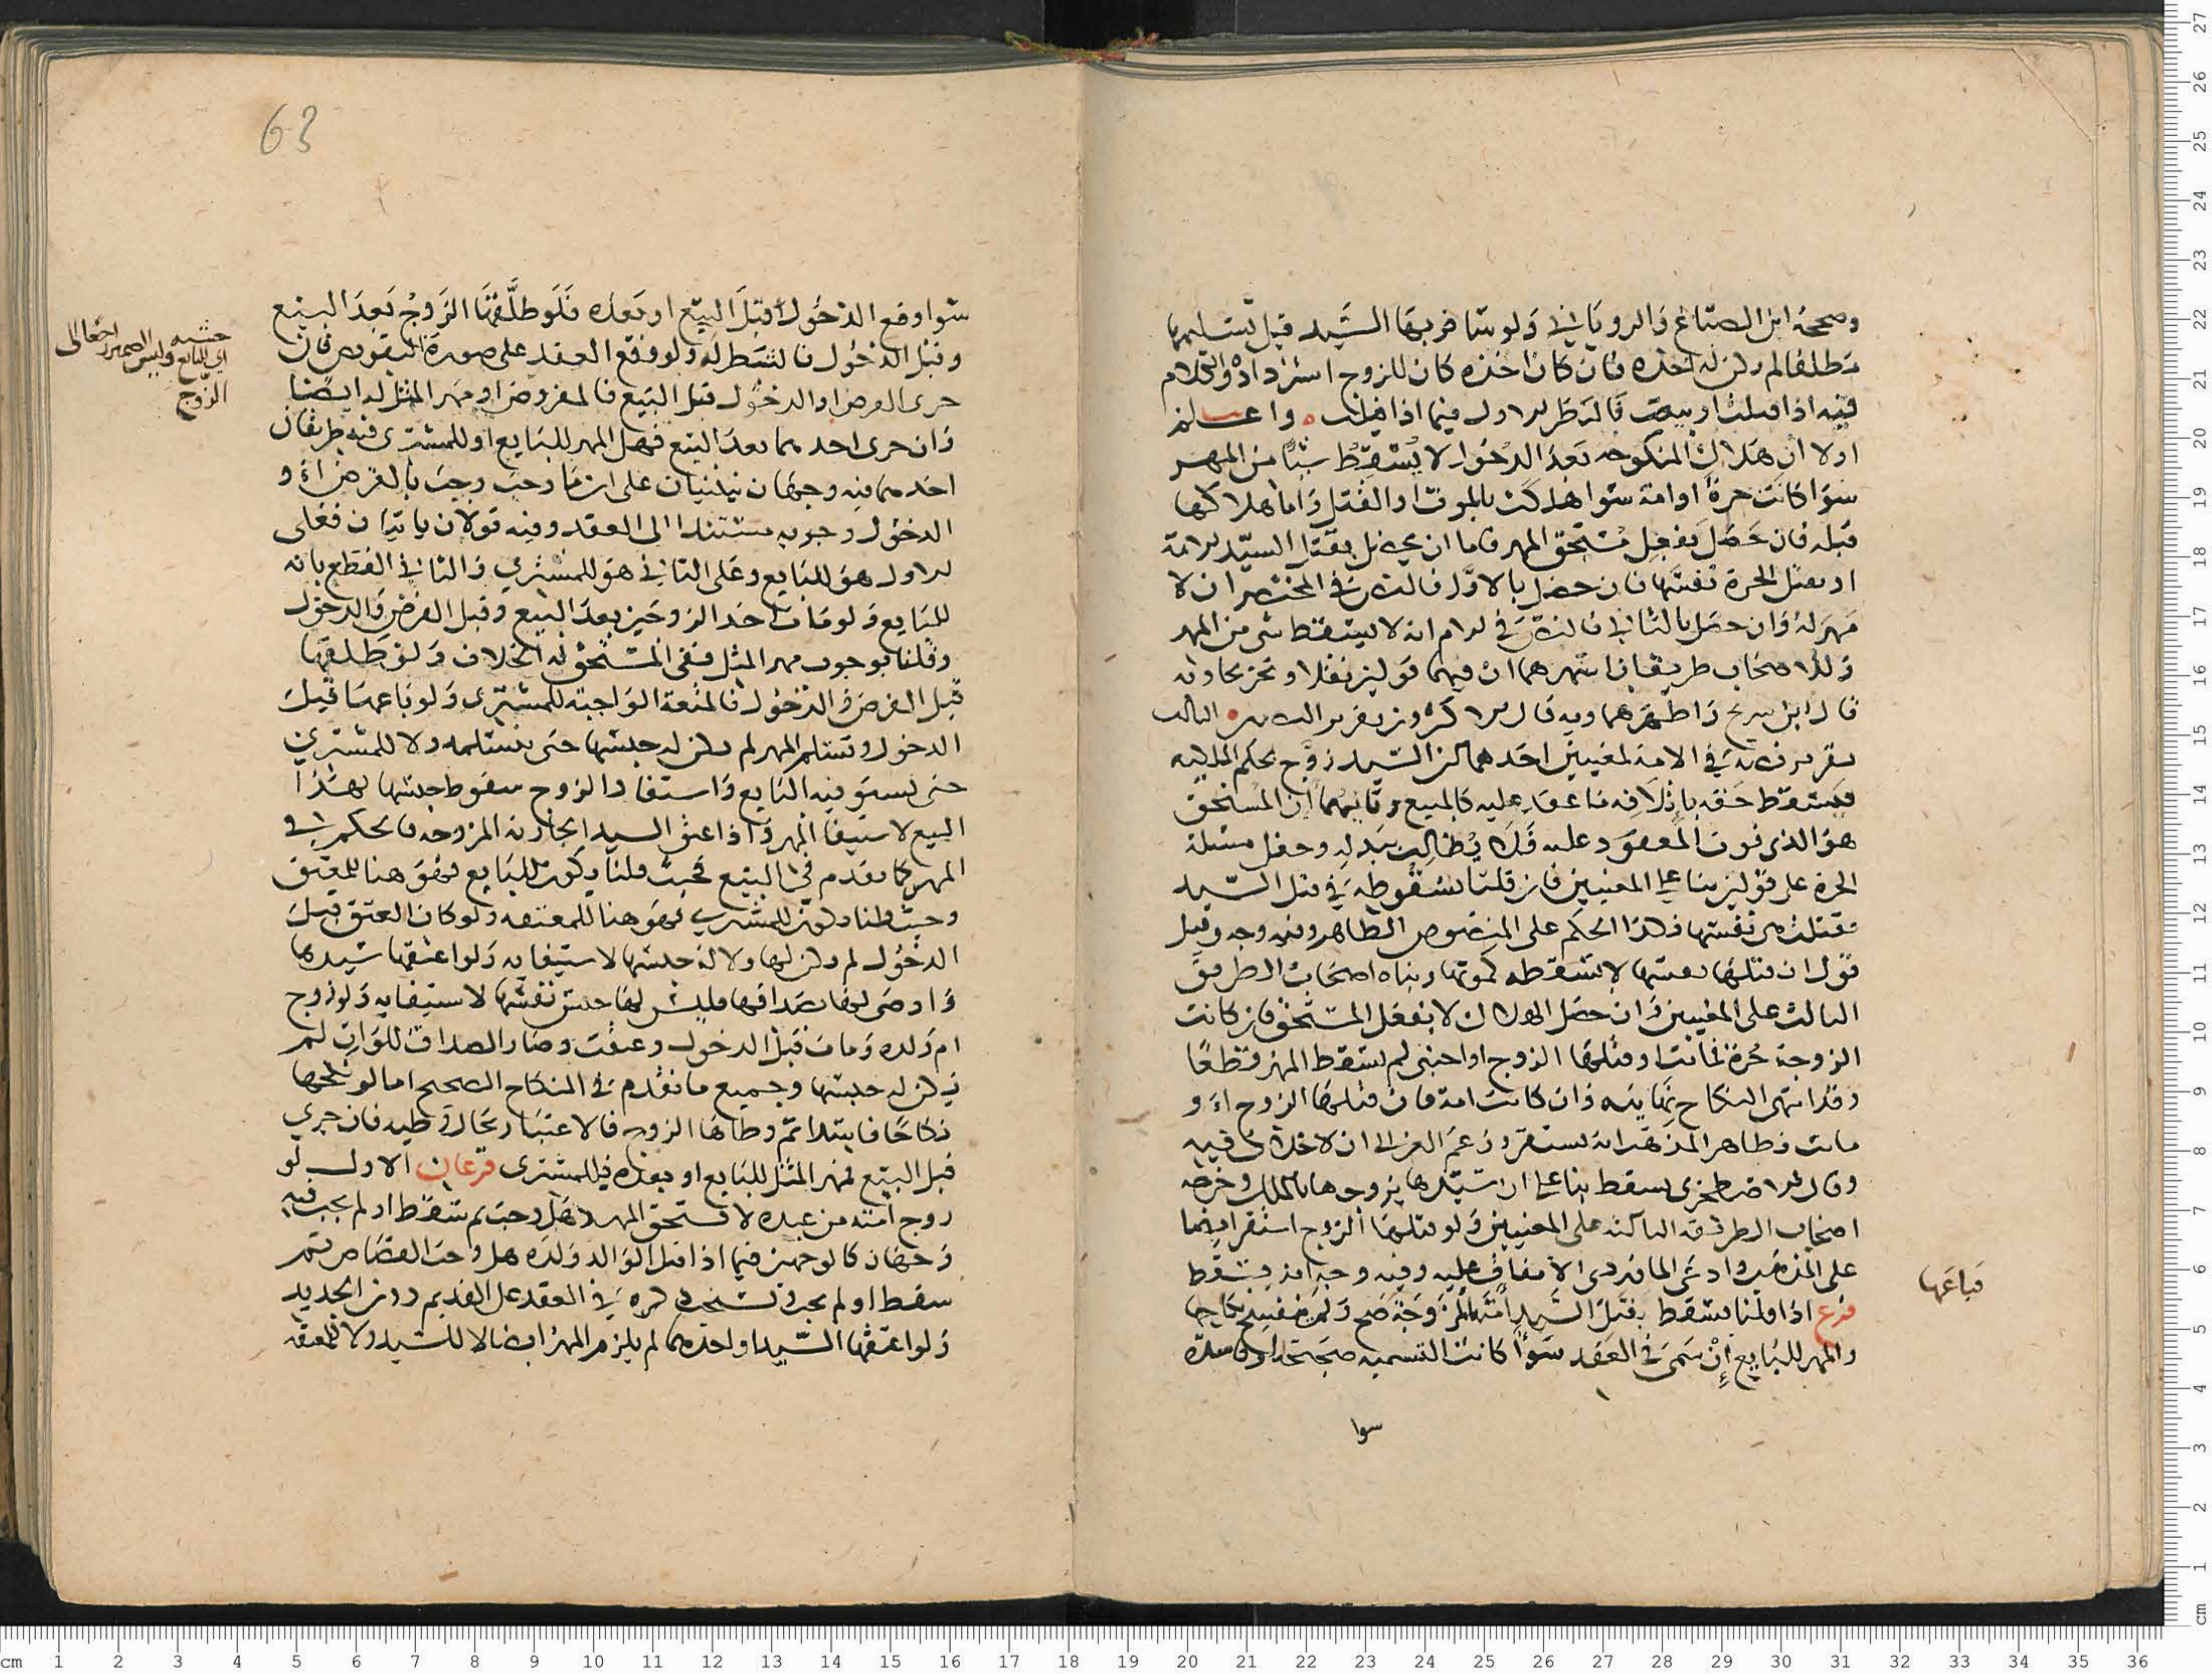 وصححه ابن الصباغ والرویانی ولو سافر بها السید قبل تسلیمها
فطلقا لم یکن له اخذه فان کان اخذه کان للزوج استرداده والکلام
فیه اذا قبلت او بیعت فالنظر الاول فیما اذا قبلت واعلم
اولا ان هلاک المنکوحه بعد الدخول لا یسقط شیا من المهر
سوا کانت حرة او امة سوا هلکت بالموت او القتل واما هلاکها
قبله فان حصل بفعل مستحق المهر فاما ان یحصل بقتل السید الامة
او بقتل الحرة نفسها فان حصل بالاول فالنص فی المختصر ان لا
مهر له وان حصل بالثانی فالنص فی الام انه لا یسقط شی من المهر
وللاصحاب طریقان اشهرهما ان فیهما قولین نقلا وتخریجا وبه
قال ابن سریج واظهرهما وبه قال الاکثرون تقریر النصین الثالث
تقریر فی الامة لمعنیین احدهما ان السید زوج بحکم الملکیه
فیسقط حقه باتلافه ما عقد علیه کالمبیع وثانیهما ان المستحق
هو الذی فوت المعقود علیه فلا یطالب ببدله وجعل مسئلة
الحرة علی قولین بنا علی المعنیین فان قلنا بسقوطه فی قتل السید
فقتلت هی نفسها فهذا الحکم علی المنصوص الظاهر وفیه وجه وقیل
قول ان قتلها نفسها لا یسقطه کموتها وبناه اصحاب الطریق
الثالث علی المعنیین وان حصل الهلاک لا بفعل المستحق فان کانت
الزوجة حرة فماتت او قتلها الزوج او اجنبی لم یسقط المهر قطعا
وقد انتهی النکاح نهایته وان کانت امة فان قتلها الزوج او
ماتت فظاهر المذهب انه یستقر وزعم الغزالی ان لا خلاف فیه
وقال الاصطخری یسقط بنا علی ان سیدها یزوجها بالملک وخرجه
اصحاب الطریقة الثالثة علی المعنیین ولو قتلها الزوج استقر ایضا
علی المذهب وادعی الماوردی الاتفاق علیه وفیه وجه انه یسقط
فرع اذا قلنا یسقط بقتل السید امته المزوجة صح ولم ینفسخ نکاحها
والمهر للبایع ان سمی فی العقد سوا کانت التسمیه صحیحة او فاسدة
فباعها
سوا
63
سوا وقع الدخول قبل البیع او بعده فلو طلقها الزوج بعد البیع
وقبل الدخول فالشطر له ولو وقع العقد علی صورة التفویض فان
جری الفرض او الدخول قبل البیع فالمفروض او مهر المثل له ایضا
وان جری احدهما بعد البیع فهل المهر للبایع او للمشتری فیه طریقان
احدهما فیه وجهان ینبنیان علی ان ما وجب وجب بالفرض او
الدخول وجوبه مستندا الی العقد وفیه قولان یاتیان فعلی
الاول هو للبایع وعلی الثانی هو للمشتری والثانی القطع بانه
للبایع ولو مات احد الزوجین بعد البیع وقبل الفرض والدخول
وقلنا بوجوب مهر المثل ففی المستحق له الخلاف ولو طلقها
قبل الفرض والدخول فالمتعة الواجبة للمشتری ولو باعها قبل
الدخول وتسلم المهر لم یکن له حبسها حتی یتسلمه ولا للمشتری
حتی یستوفیه البایع واستفاد الزوج سقوط حبسها بهذا
البیع لاستیفا المهر واذا اعتق السید الجاریه المزوجه فالحکم فی
المهر کما تقدم فی البیع فحیث قلنا یکون للبایع فهو هنا للمعتق
وحیث قلنا یکون للمشتری فهو هنا للمعتقه ولو کان العتق قبل
الدخول لم یکن لها ولا له حبسها لاستیفایه ولو اعتقها سیدها
واوصی لها بصداقها فلیس لها حبس نفسها لاستیفایه ولو زوج
ام ولده ومات قبل الدخول وعتقت وصار الصداق للوارث لم
یکن له حبسها وجمیع ما تقدم فی النکاح الصحیح اما لو نکحها
نکاحا فاسدا ثم وطاها الزوج فالاعتبار بحال وطیه فان جری
قبل البیع فمهر المثل للبایع او بعده فللمشتری فرعان الاول لو
زوج امته من عبده لا یستحق المهر وهل وجب ثم سقط او لم یجب فیه
وجهان کالوجهین فیما اذا قتل الوالد ولده هل وجب القصاص ثم
سقط او لم یجب ویستحب ذکره فی العقد علی القدیم دون الجدید
ولو اعتقها السید او احدهما لم یلزم المهر ایضا لا للسید ولا للمعتقه
حشیه
ای للبایع ولیس الضمیر راجعا الی
الزوج